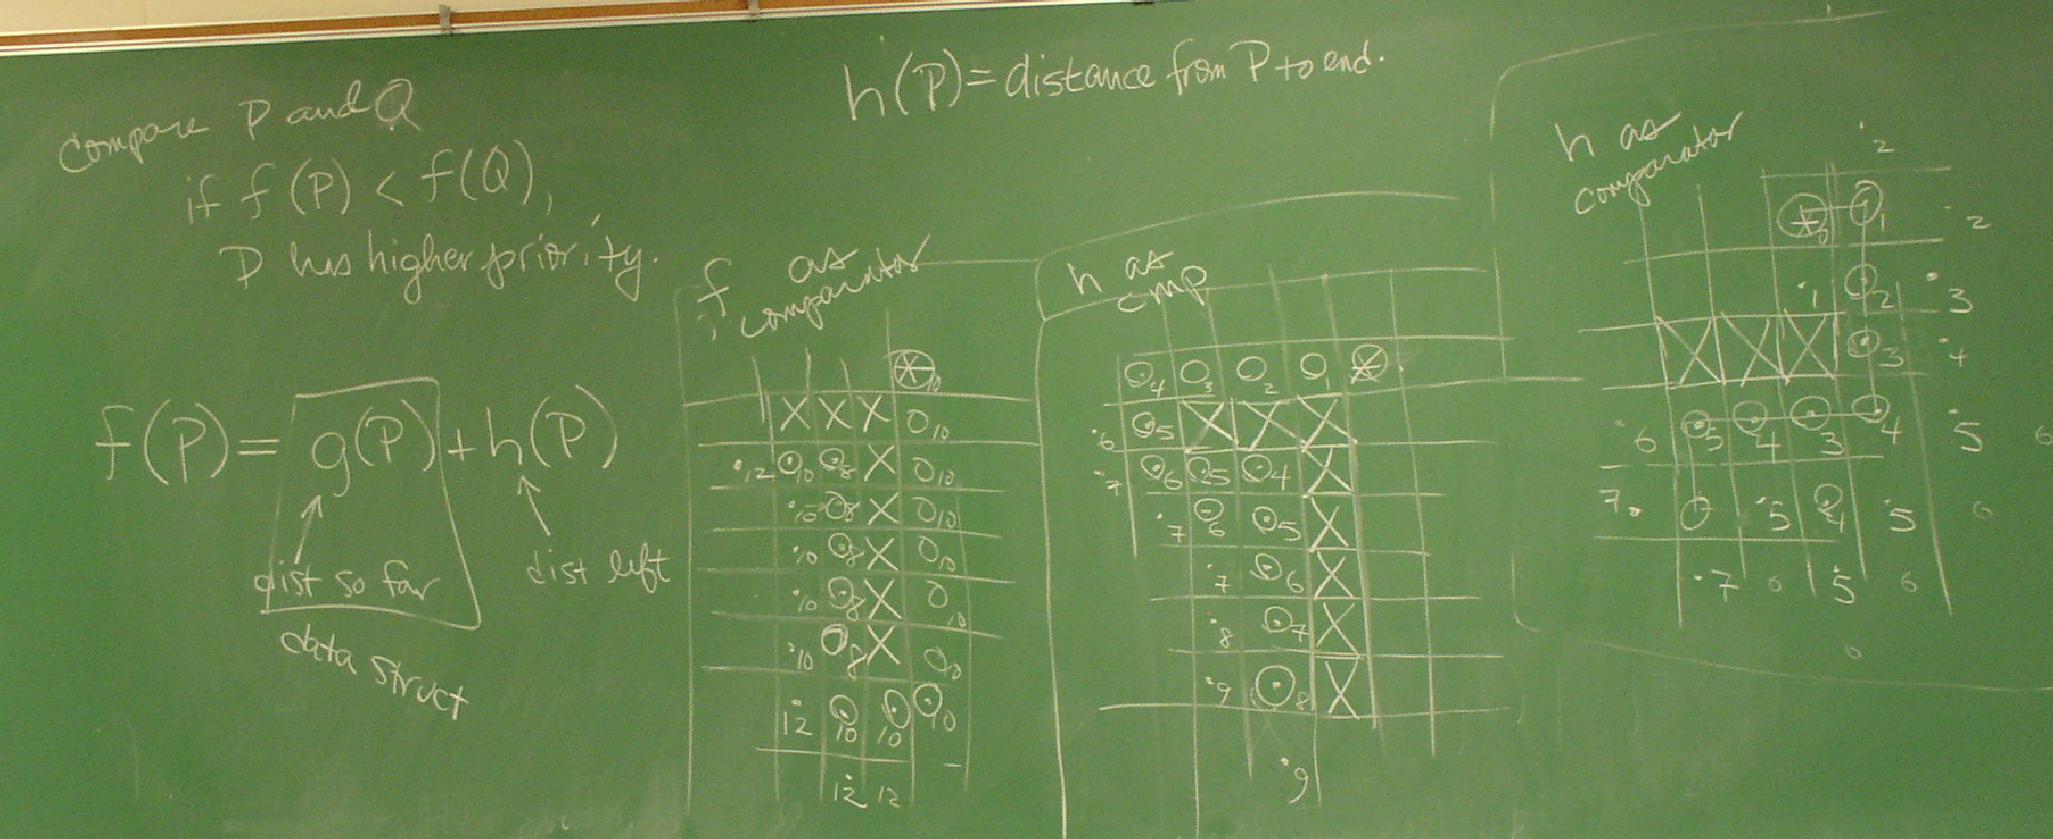 compare P and Q
if f(P) < f(Q),
P has higher priority.
h(P) = distance from P to end.
f(P) = g(P) + h(P)
dist so far
dist left
data struct
f as
comparator
10
X X X 10
12 10 8 X 10
10 8 X 10
10 8 X 10
10 8 X
10
10 8 X 10
12 10 10 10
12 12
h as
cmp
4 3 2 1
6 5 X X X
7 6 5 4 X
7 6 5 X
7 6 X
8 7 X
9 8 X
9
h as
comparator
2
0 1 2
1 2 3
X X X 3 4
6 5 4 3 4 5 6
7 5 4 5 6
7 6 5 6